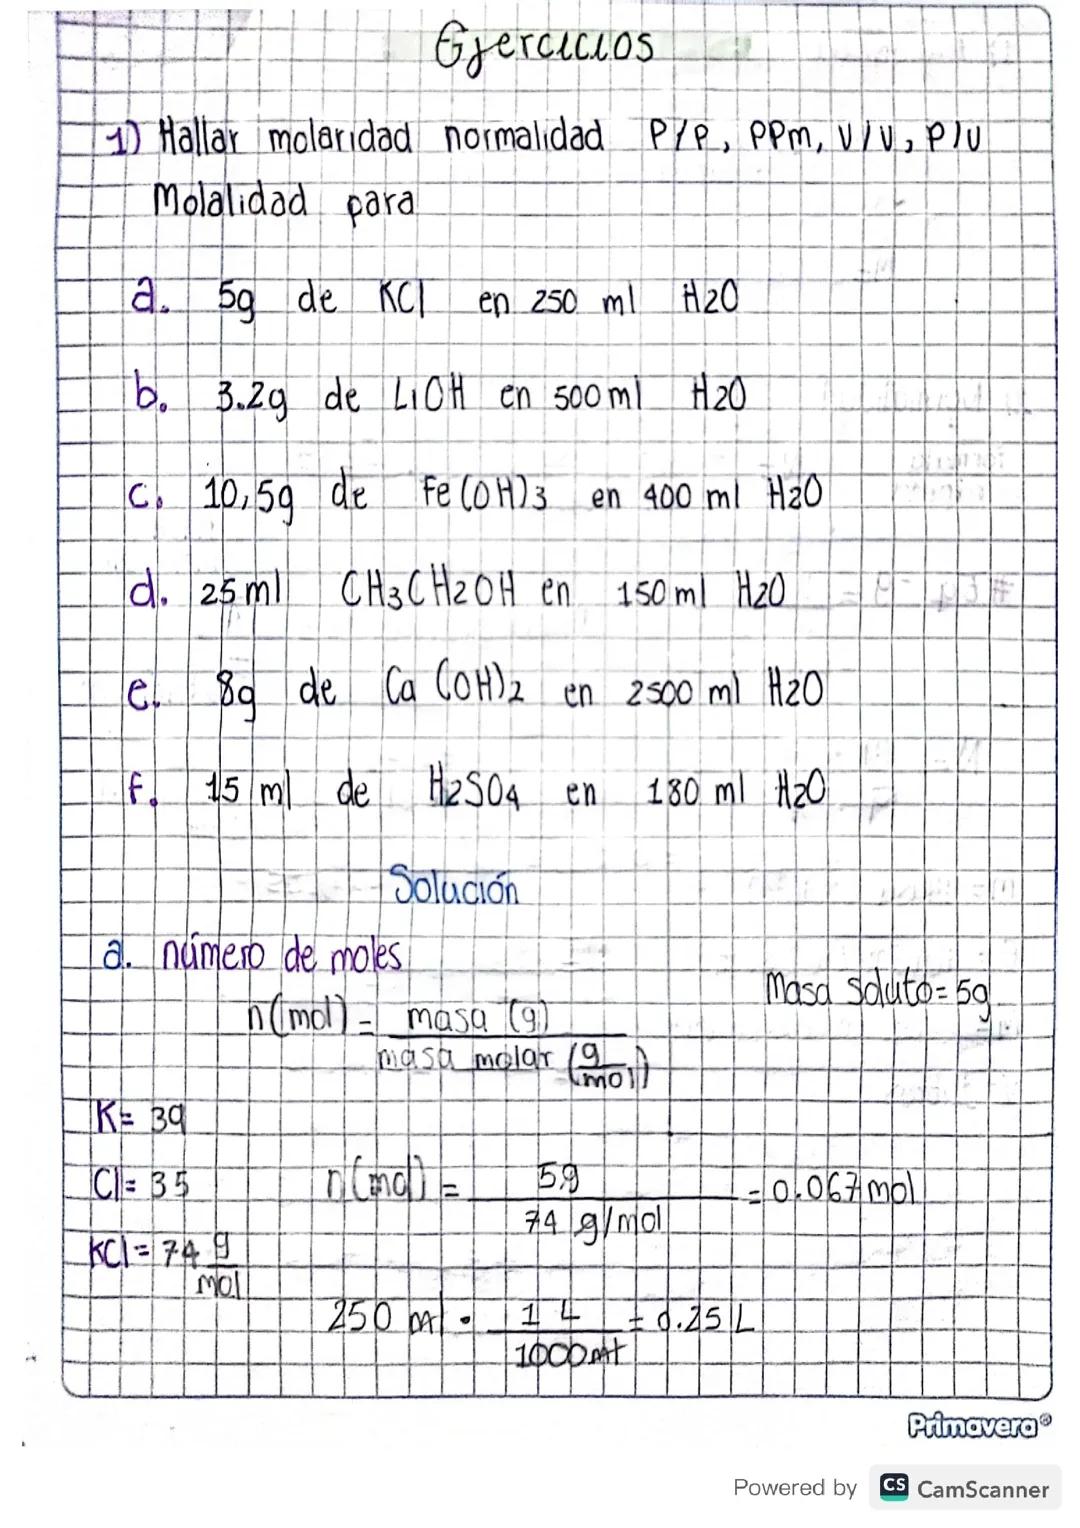 Ejercicios
1) Hallar molaridad normalidad P/P, PPm, V/V, P/V
Molalidad para
a. 5g de KCl en 250 ml H2O
b. 3.2g de LiOH en 500 ml H2O
c. 10,5g de Fe(OH)3 en 400 ml H2O
d. 25 ml CH3CH2OH en 150 ml H2O
e. 8g de Ca(OH)2 en 2500 ml H2O
f. 15 ml de H2SO4 en 180 ml H2O
Solución
a. número de moles
Masa soluto = 5g
n(mol) = masa (g)
masa molar (g/mol)
K = 39
Cl = 35
n(mol) = 5g = 0.067 mol
74 g/mol
KCl = 74 g/mol
250 ml • 1 L = 0.25 L
1000 ml
Primavera®
Powered by CS CamScanner